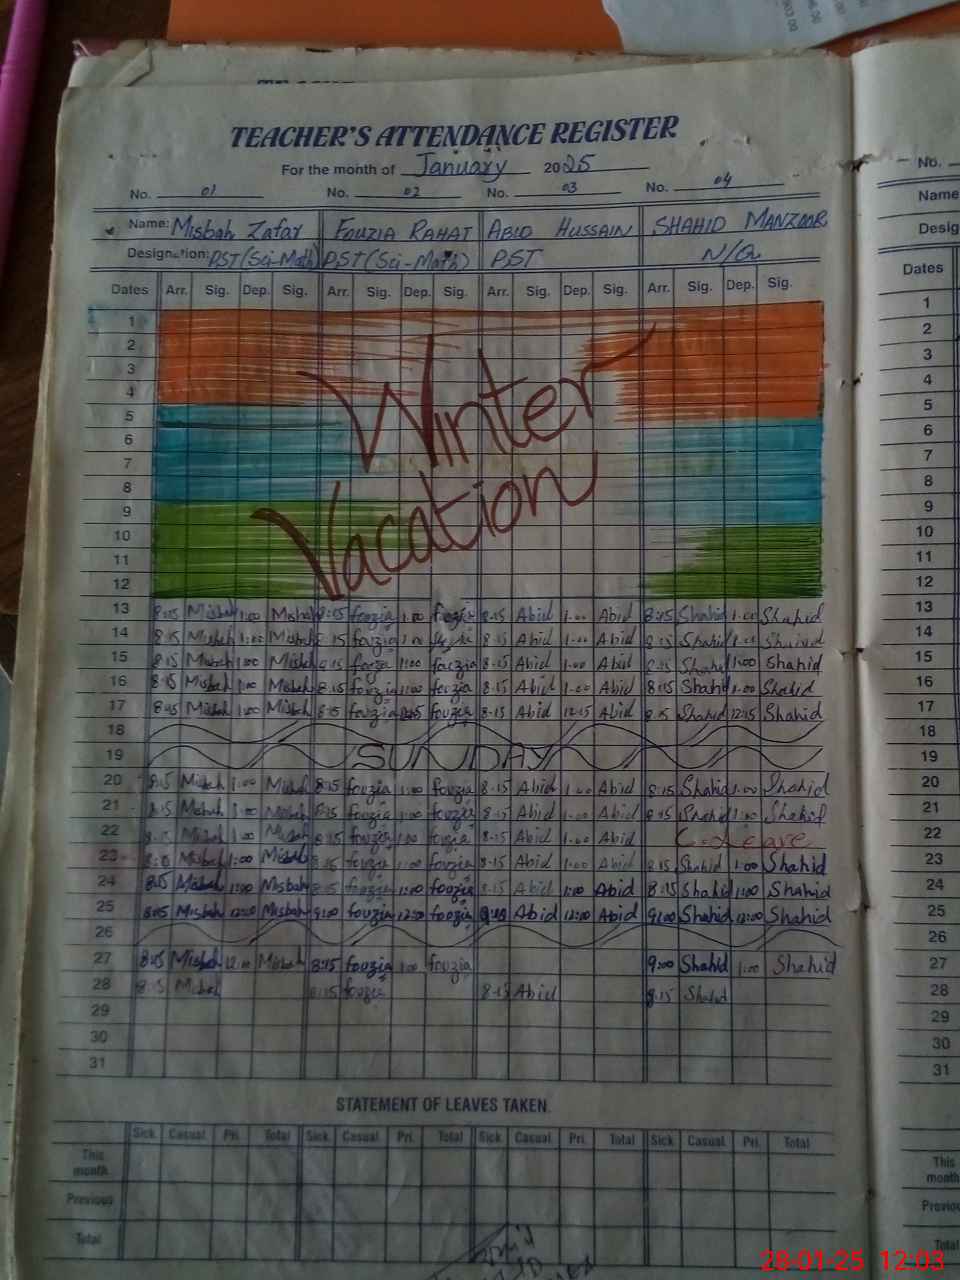 TEACHER'S ATTENDANCE REGISTER
For the month of January 2025
No. 01 No. 02 No. 03 No. 04 No.
Name: Misbah Zafar FOUZIA RAHAT ABID HUSSAIN SHAHID MANZOOR Name
Designation: PST (Sci-Math) PST (Sci-Math) PST N/Q Desig
Dates Arr. Sig. Dep. Sig. Arr. Sig. Dep. Sig. Arr. Sig. Dep. Sig. Arr. Sig. Dep. Sig. Dates
1 1
2 2
3 3
4 4
5 5
6 6
7 7
8 8
9 9
10 10
11 11
12 12
Winter
Vacation
13 8:15 Misbah 1:00 Misbah 8:15 fouzia 1:00 fouzia 8-15 Abid 1-00 Abid 8:15 Shahid 1:00 Shahid 13
14 8:15 Misbah 1:00 Misbah 8:15 fouzia 1:00 8-15 Abid 1-00 Abid 8:15 Shahid Shahid 14
15 8:15 Misbah 1:00 Misbah 8:15 fouzia 1:00 fouzia 8-15 Abid 1-00 Abid 8:15 Shahid 1:00 Shahid 15
16 8:15 Misbah 1:00 Misbah 8:15 fouzia 1:00 fouzia 8-15 Abid 1-00 Abid 8:15 Shahid 1:00 Shahid 16
17 8:15 Misbah 1:00 Misbah 8:15 fouzia fouzia 8-15 Abid 12-15 Abid 8:15 Shahid 12:15 Shahid 17
18 18
19 SUNDAY 19
20 8:15 Misbah 1:00 Misbah 8:15 fouzia 1:00 fouzia 8-15 Abid 1-00 Abid 8:15 Shahid 1:00 Shahid 20
21 8:15 Misbah 1:00 Misbah 8:15 fouzia 1:00 fouzia 8-15 Abid 1-00 Abid 8:15 Shahid 1:00 Shahid 21
22 Misbah 1:00 Misbah 8:15 fouzia 1:00 fouzia 8-15 Abid 1-00 Abid C-Leave 22
23 8:15 Misbah 1:00 Misbah 8:15 fouzia 1:00 fouzia 8-15 Abid 1-00 Abid 8:15 Shahid 1:00 Shahid 23
24 8:15 Misbah 1:00 Misbah 8:15 fouzia 1:00 fouzia 8-15 Abid 1:00 Abid 8:15 Shahid 1:00 Shahid 24
25 8:15 Misbah 12:00 Misbah 9:00 fouzia 12:00 fouzia Abid 12:00 Abid 9:00 Shahid 12:00 Shahid 25
26 26
27 8:15 Misbah Misbah 8:15 fouzia 1:00 fouzia 9:00 Shahid 1:00 Shahid 27
28 8:15 Misbah 8:15 fouzia 8-15 Abid 8:15 Shahid 28
29 29
30 30
31 31
STATEMENT OF LEAVES TAKEN
Sick Casual Pri. Total Sick Casual Pri. Total Sick Casual Pri. Total Sick Casual Pri. Total
This month This month
Previous Previou
Total Total
28-01-25 12:03